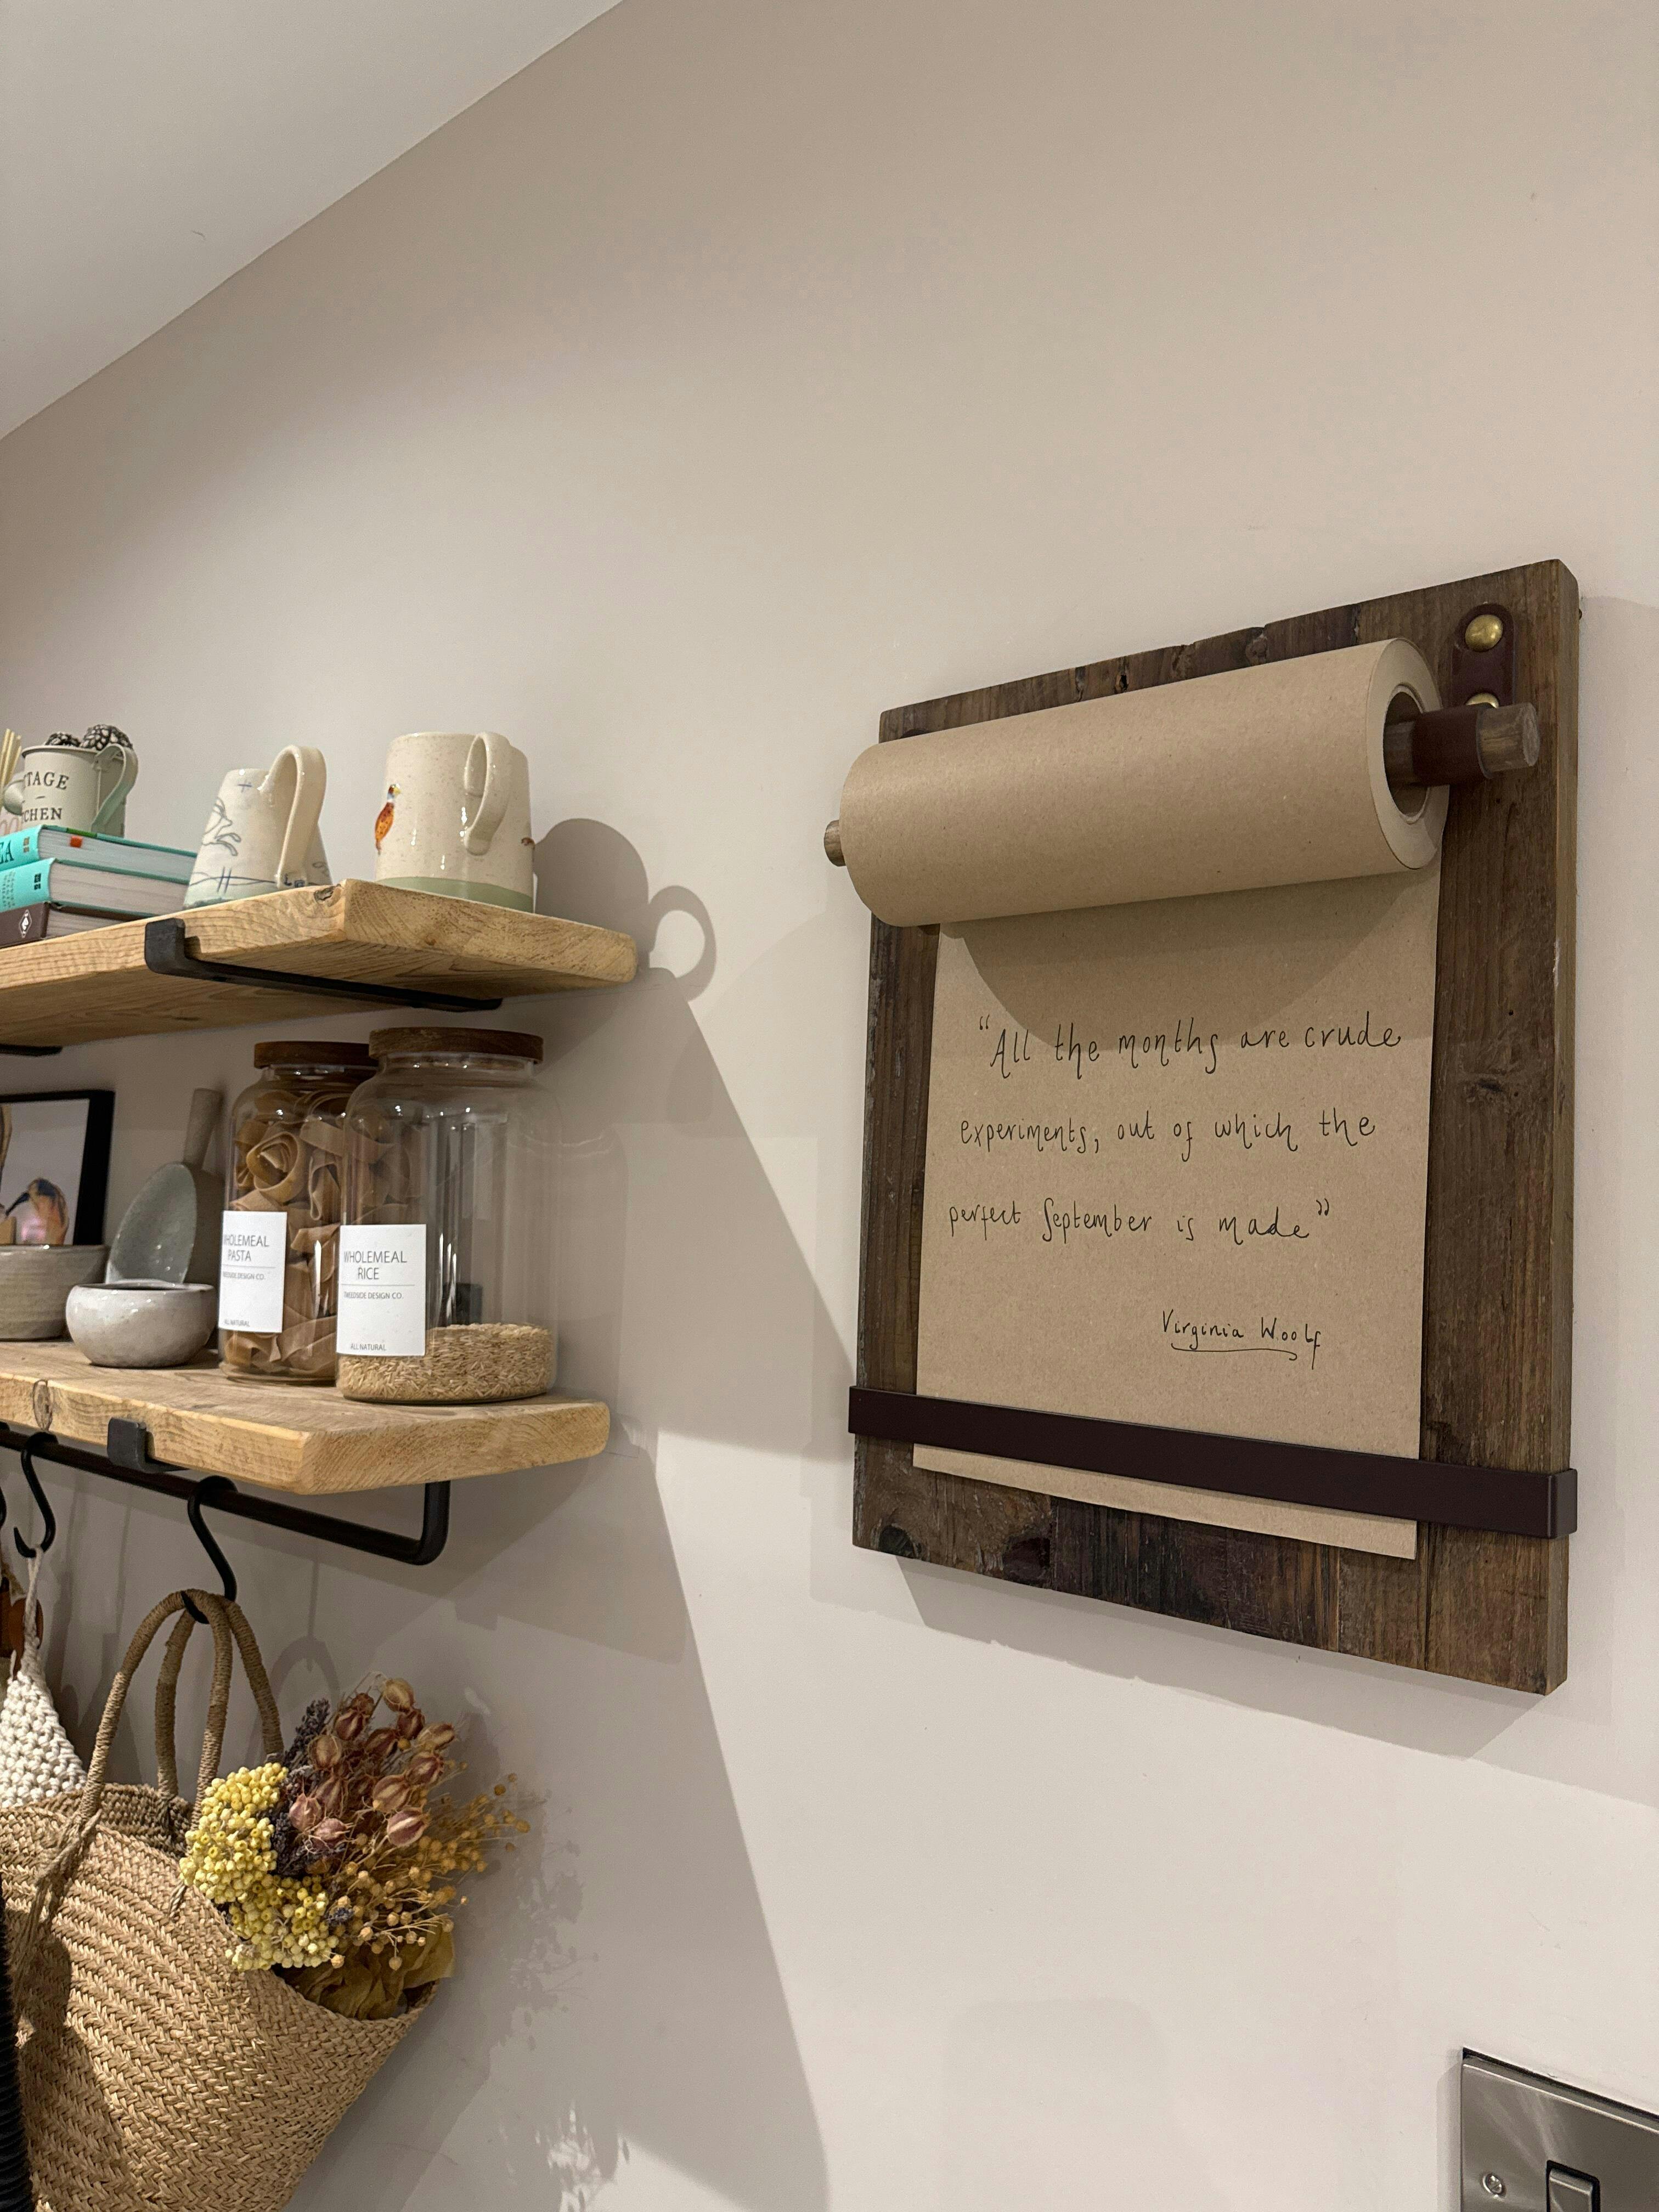 TAGE
CHEN
"All the months are crude
experiments, out of which the
perfect September is made"
Virginia Woolf
WHOLEMEAL
PASTA
DESIGN CO.
ALL NATURAL
WHOLEMEAL
RICE
TWEEDSIDE DESIGN CO.
ALL NATURAL